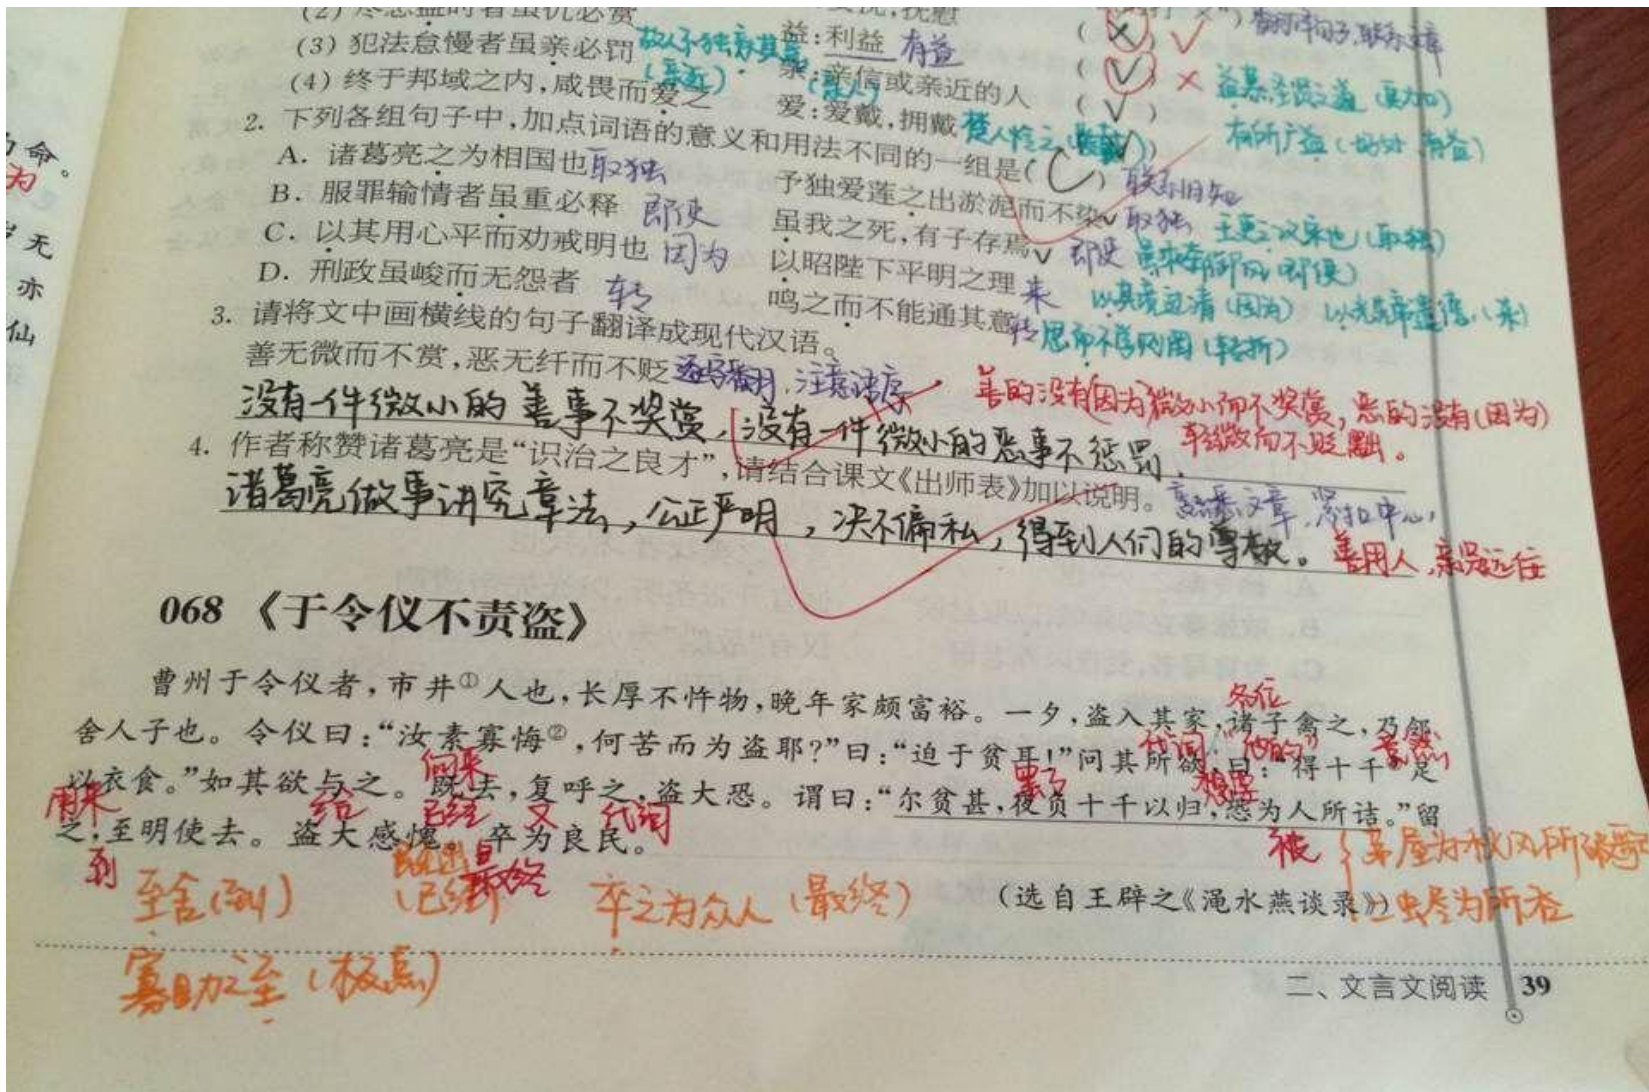 命。
为
无
亦
仙
(3) 犯法怠慢者虽亲必罚
益:利益 有益
亲:亲信或亲近的人 (√) ×
(4) 终于邦域之内,咸畏而爱之
爱:爱戴,拥戴 (√)
2. 下列各组句子中,加点词语的意义和用法不同的一组是(C)
A. 诸葛亮之为相国也 取独 予独爱莲之出淤泥而不染 取独
B. 服罪输情者虽重必释 即使 虽我之死,有子存焉 即使
C. 以其用心平而劝戒明也 因为 以昭陛下平明之理 来
以其境过清(因为)
D. 刑政虽峻而无怨者 转 鸣之而不能通其意 转
思而不学则罔(转折)
3. 请将文中画横线的句子翻译成现代汉语。
善无微而不赏,恶无纤而不贬
没有一件微小的善事不奖赏,没有一件微小的恶事不惩罚.
善的没有(因为)微小而不奖赏,恶的没有(因为)
轻微而不贬黜。
4. 作者称赞诸葛亮是“识治之良才”,请结合课文《出师表》加以说明。
诸葛亮做事讲究章法,公正严明,决不偏私,得到人们的尊敬。
善用人,亲贤远佞
068 《于令仪不责盗》
曹州于令仪者,市井①人也,长厚不忤物,晚年家颇富裕。一夕,盗入其家,诸子禽之,乃邻
各位
舍人子也。令仪曰:“汝素寡悔②,何苦而为盗耶?”曰:“迫于贫耳!”问其所欲,曰:“得十千足
以衣食。”如其欲与之。既去,复呼之,盗大恐。谓曰:“尔贫甚,夜负十千以归,恐为人所诘。”留
用来 给 已经 又 代词
之,至明使去。盗大感愧,卒为良民。
到 最终 被
至舍(到) (已经) 卒之为众人(最终)
(选自王辟之《渑水燕谈录》)
茅屋为秋风所破歌
寡助之至(极点)
二、文言文阅读 39